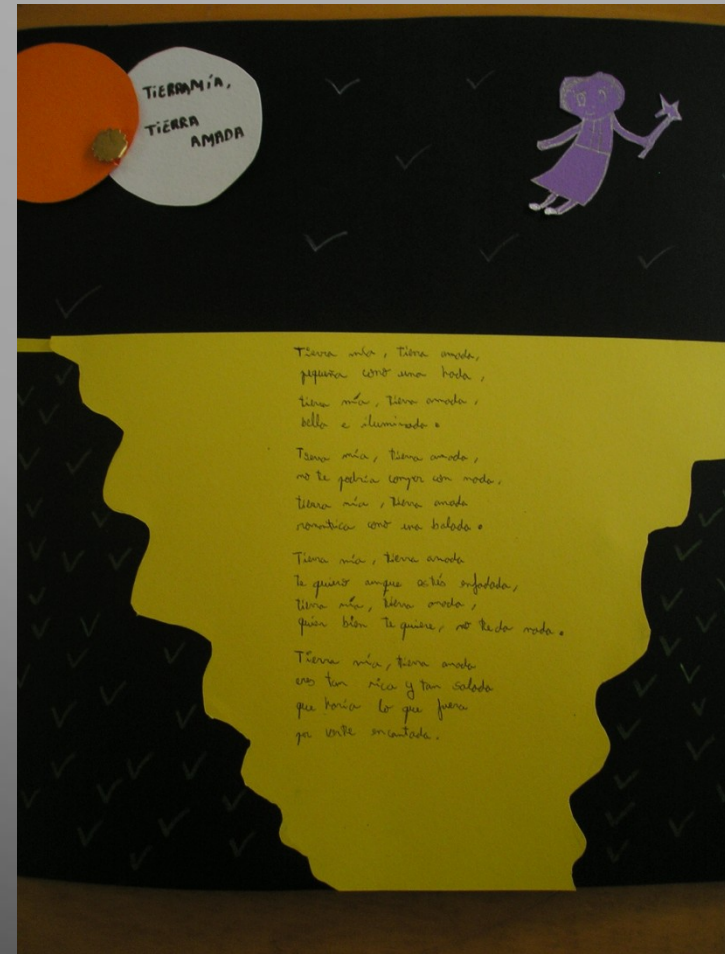 TIERRA MÍA,
TIERRA
AMADA
Tierra mía, tierra amada,
pequeña como una hada,
tierra mía, tierra amada,
bella e iluminada.
Tierra mía, tierra amada,
no te podría comparar con nada,
tierra mía, tierra amada
romántica como una balada.
Tierra mía, tierra amada
te quiero aunque estés enfadada,
tierra mía, tierra amada,
quien bien te quiere, no te da nada.
Tierra mía, tierra amada
eres tan rica y tan salada
que haría lo que fuera
por verte encantada.